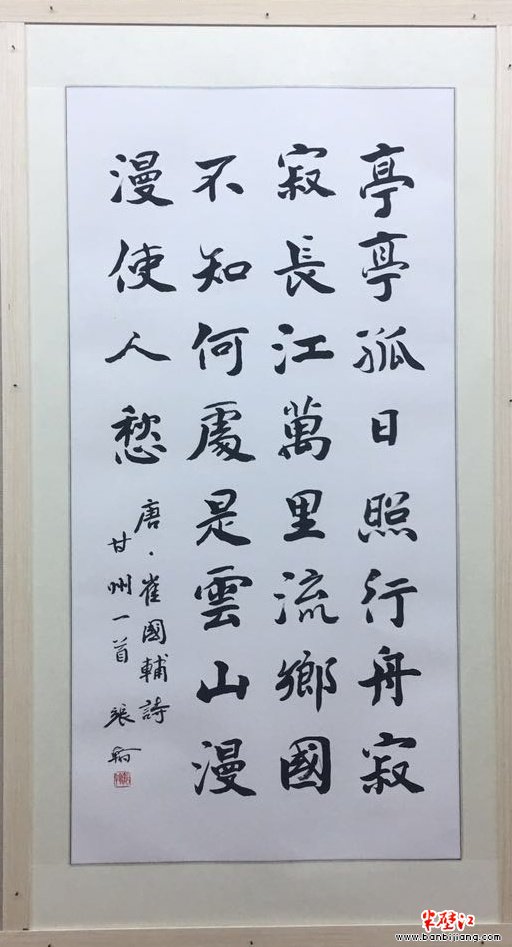 亭亭孤日照行舟寂
寂長江萬里流鄉國
不知何處是雲山漫
漫使人愁
唐·崔國輔詩
甘州一首 張翰
半壁江
www.banbijiang.com